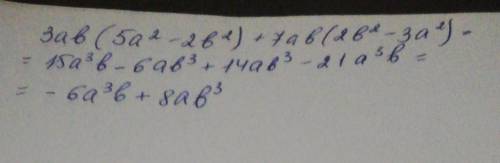 3ab(5a² - 2b²) + 7ab(2b² - 3a²) =
= 15a³b - 6ab³ + 14ab³ - 21a³b =
= - 6a³b + 8ab³